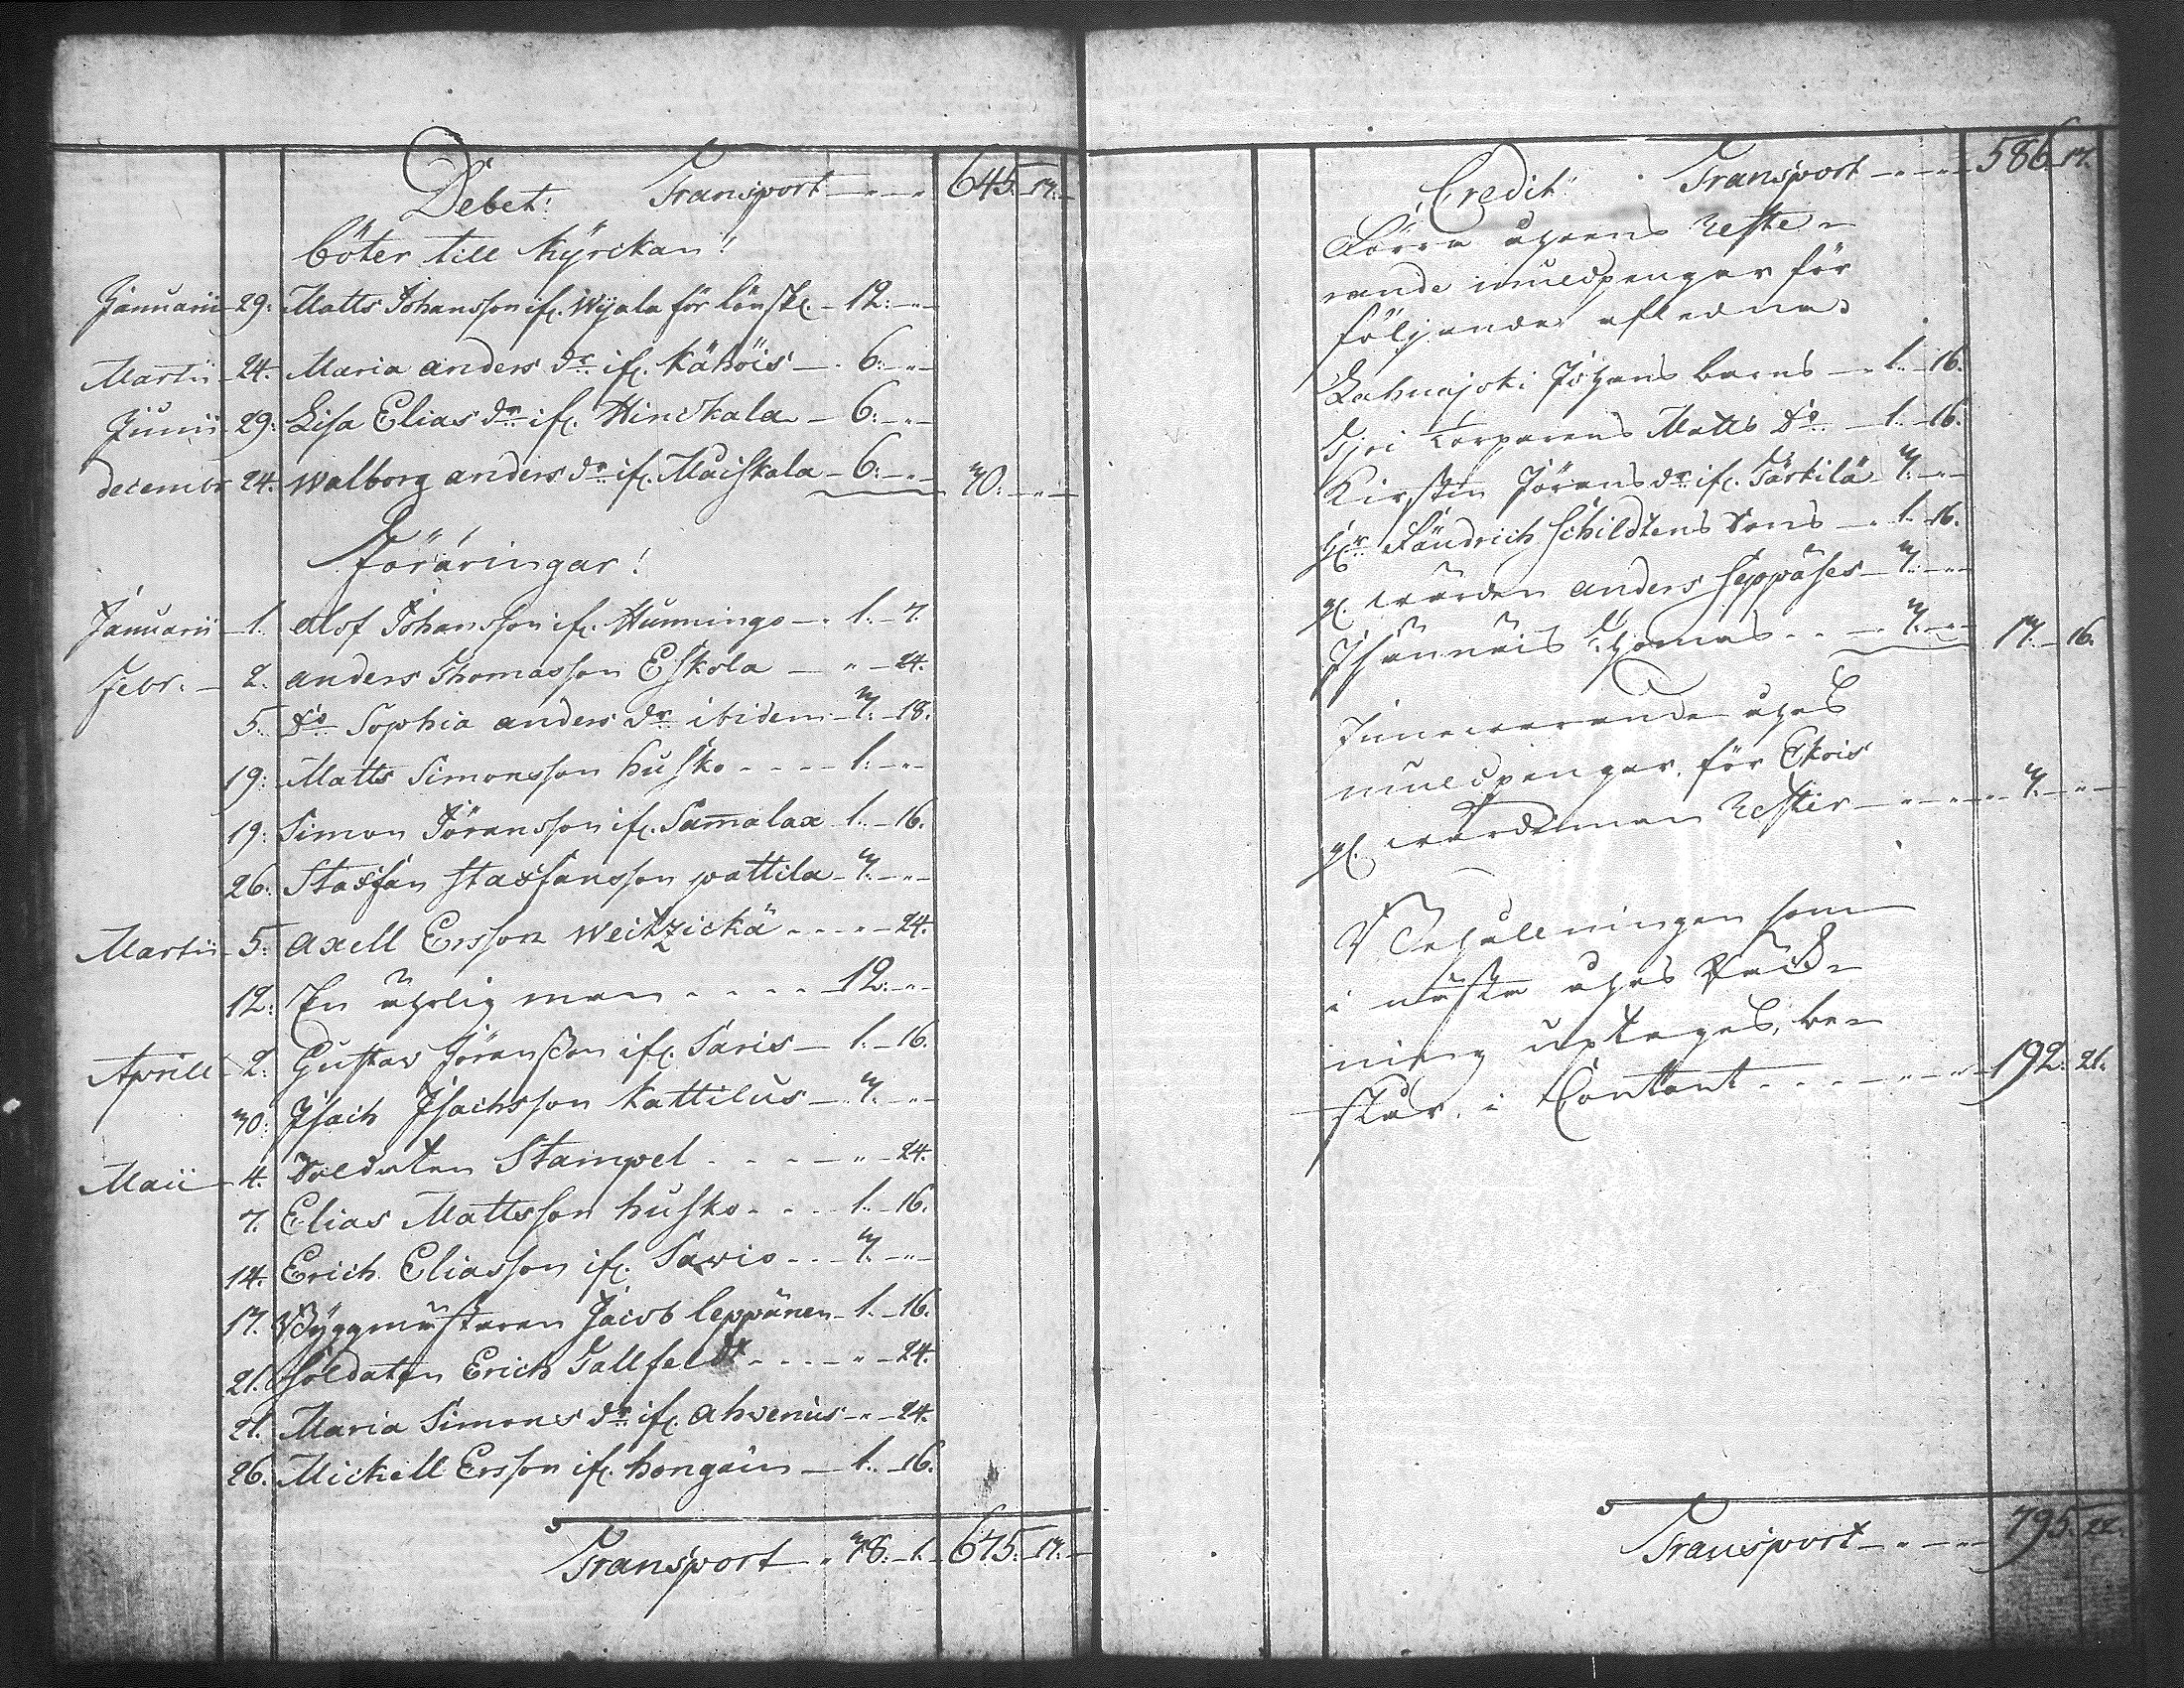 Debet: Transport 645. 17.
Böter till Kyrckan!
Januarii 29: Matts Johansson ifr. Wijala för lönskl. 12: "
Martii 24. Maria anders dr. ifr. Kähöis 6: "
Junii 29: Lisa Elias dr. ifr. Hinckala 6: "
decembr 24. Walborg anders dr. ifr. Maiskala 6: " 30. "
Föräringar!
Januarii 1. Olof Johansson ifr. Hunningo 1. 7.
Febr. 2. anders Thomasson Eskola " 24.
5. Do Sophia anders dr. ibidem 3. 18.
19: Matts Simonsson husko 1: "
19: Simon Jöransson ifr. Samalax 1. 16.
26: Staffan Staffansson pattila 3. "
Martii 5: Axell Ersson Weitzickä " 24.
12: En ährlig man 12: "
Aprill 2: Gustav Jöransson ifr. Saris 1. 16.
30: Isach Isachsson Kattilus 3. "
Maii 4. Soldaten Stampel " 24.
7. Elias Mattsson husko 1. 16.
14. Erich Eliasson ifr. Savio 3. "
17. Byggmästaren Jacob leppänen 1. 16.
21. Soldaten Erich Tallfeldt " 24.
21. Maria Simons dr. ifr. ahvenius " 24.
26. Mickell Ersson ifr. hongain 1. 16.
Transport 38. 1. 675. 17.
Credit! Transport 586. 17.
Förra åhrens reste-
rande mullpengar för
följande aflednas
Lahnajoki Johans barns 1. 16.
torparens Matts Do 1. 16.
Kirstin Jörans dr. ifr. Tärkilä 3. "
Hr. Fändrich Schildtens Sons 1. 16.
gl. wärden anders Seppäses 3. "
Isännäis Thomas 3. " 13. 16.
Innewarande åhrs
mullpengar för Ekois
gl. wärdinnan rester 3. "
Behållningen som
i nästa åhrs Räck-
ning uptages, be-
står i Contant 192. 21.
Transport 795. 22.